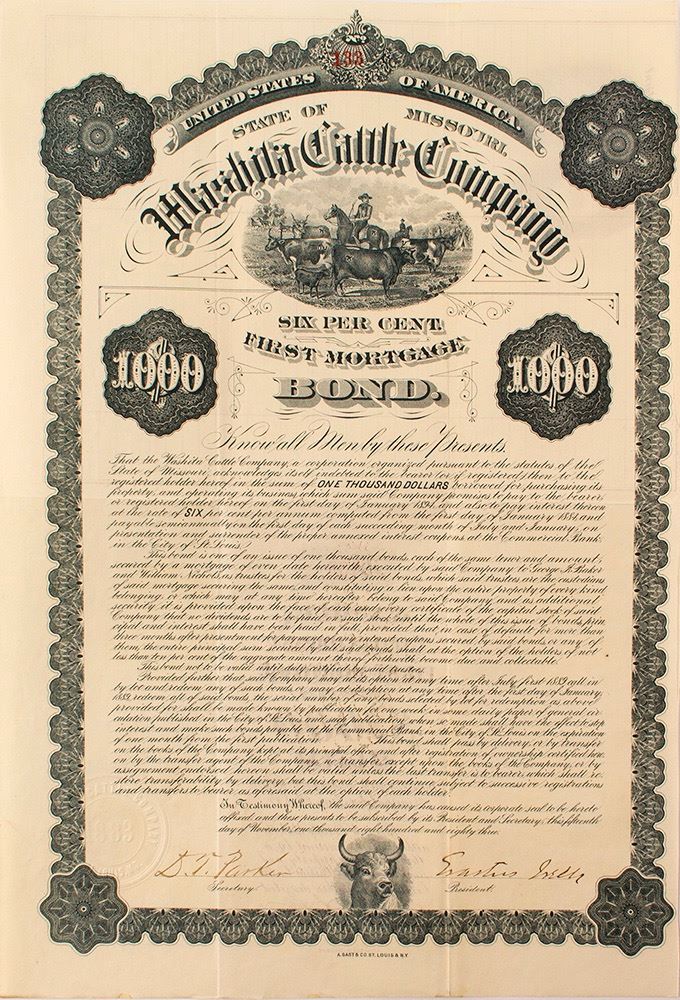 No
133
UNITED STATES OF AMERICA.
STATE OF MISSOURI.
Washita Cattle Company
SIX PER CENT.
FIRST MORTGAGE
BOND.
$1000
$1000
Know all Men by these Presents.
That the Washita Cattle Company, a corporation organized pursuant to the statutes of the
State of Missouri, acknowledges itself indebted to the bearer or if registered, then to the
registered holder hereof in the sum of ONE THOUSAND DOLLARS borrowed for purchasing its
property, and operating its business, which sum said Company promises to pay to the bearer
or registered holder hereof on the first day of January 1894, and also to pay interest thereon
at the rate of SIX per cent per annum computed from the first day of January 1884 and
payable semi annually on the first day of each succeeding month of July and January, on
presentation and surrender of the proper annexed interest coupons at the Commercial Bank
in the City of St. Louis.
This bond is one of an issue of one thousand bonds each of the same tenor and amount,
secured by a mortgage of even date herewith executed by said Company to George F. Baker
and William Nichols, as trustees for the holders of said bonds, which said trustees are the custodians
of said mortgage securing the same, and constituting a lien upon the entire property of every kind
belonging, or which may at any time hereafter belong to said Company and as additional
security it is provided upon the face of each and every certificate of the capital stock of said
Company that no dividends are to be paid on such stock until the whole of this issue of bonds, prin
cipal and interest shall have been paid in full, provided that in case of default for more than
three months after presentment for payment of any interest coupons secured by said bonds, or any of
them, the entire principal sum secured by all said bonds shall at the option of the holders of not
less than ten per cent of the aggregate amount thereof forthwith become due and collectable.
This bond not to be valid until duly certified by said trustees.
Provided further that said Company may at its option at any time after July first 1889 call in
by lot and redeem any of such bonds, or may at its option at any time after the first day of January,
1889, redeem all of said bonds, the serial number of any bonds selected by lot for redemption as above
provided for shall be made known by publication for one week in some daily paper of general cir-
culation published in the City of St. Louis and such publication when so made shall have the effect to stop
interest and make such bonds payable at the Commercial Bank in the City of St. Louis on the expiration
of one month from the first publication. This bond shall pass by delivery, or by transfer
on the books of the Company kept at its principal office, and after registration of ownership certified hereon
by the transfer agent of the Company, no transfer, except upon the books of the Company, or by
assignment endorsed hereon, shall be valid unless the last transfer is to bearer, which shall re-
store transferability by delivery, but this bond shall continue subject to successive registrations
and transfers to bearer as aforesaid at the option of each holder.
In Testimony Whereof, the said Company has caused its corporate seal to be hereto
affixed, and these presents to be subscribed by its President and Secretary, this fifteenth
day of November, one thousand eight hundred and eighty three.
D. T. Parker
Secretary.
Erastus Wells
President.
A. GAST & CO. ST. LOUIS & N.Y.